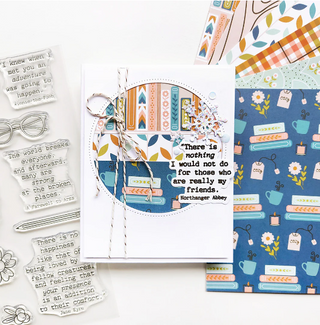 I knew when I
met you an
adventure
was going to
happen.
The world breaks
everyone,
and afterward,
many are
strong
at the broken
places.
There is no
happiness
like that of
being loved by your
fellow creatures,
and feeling that
your presence
is an addition
to their comfort.
Jane Eyre
"There is
nothing
I would not do
for those who
are really my
friends.
Northanger Abbey